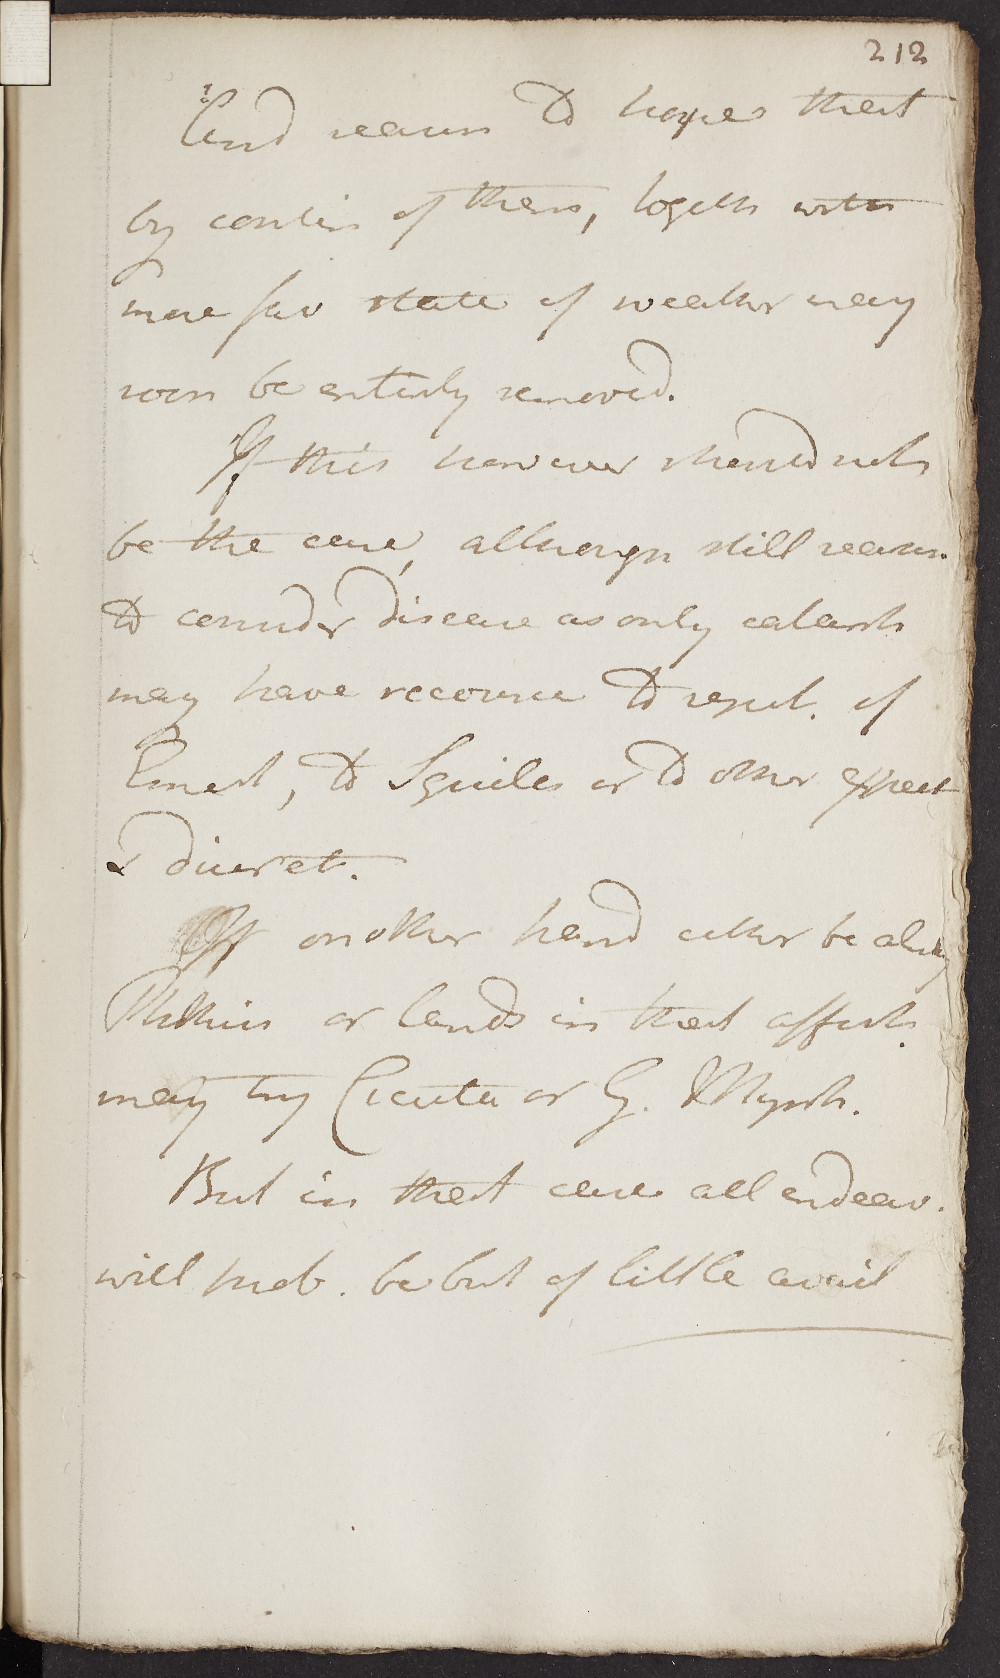 212
And reason to hope that
by contin of them, togeth with
more fav state of weather may
soon be entirely removed.
If this however should not
be the case, although still reason
to consider disease as only catarrh
may have recourse to repet. of
Emet, to Squills or to other expect
& diuret.
If on other hand either be alrdy
Phthisis or tends in that affect.
may try Cicuta or G. Myrrh.
But in that case all endeav.
will prob. be but of little avail